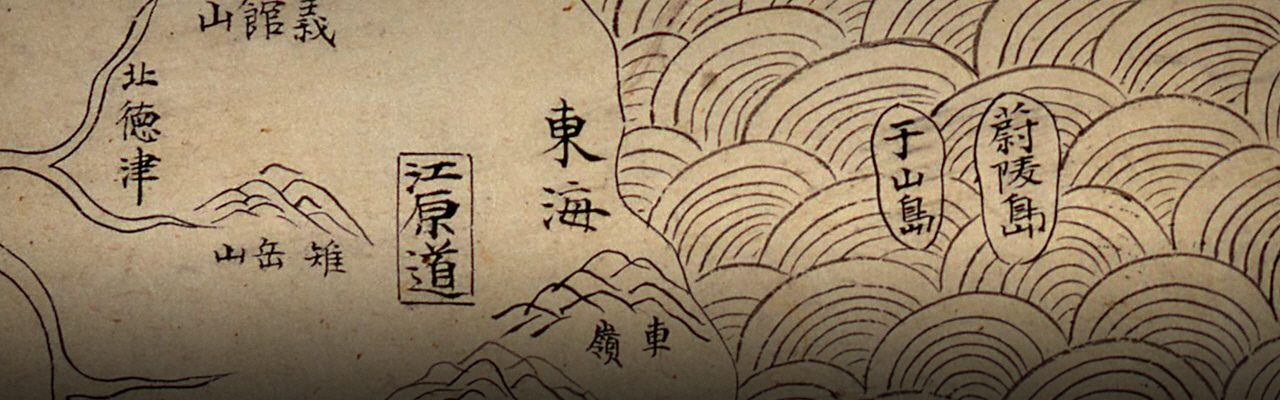 蔚陵島
于山島
東海
車嶺
江原道
義館山
雉岳山
北徳津